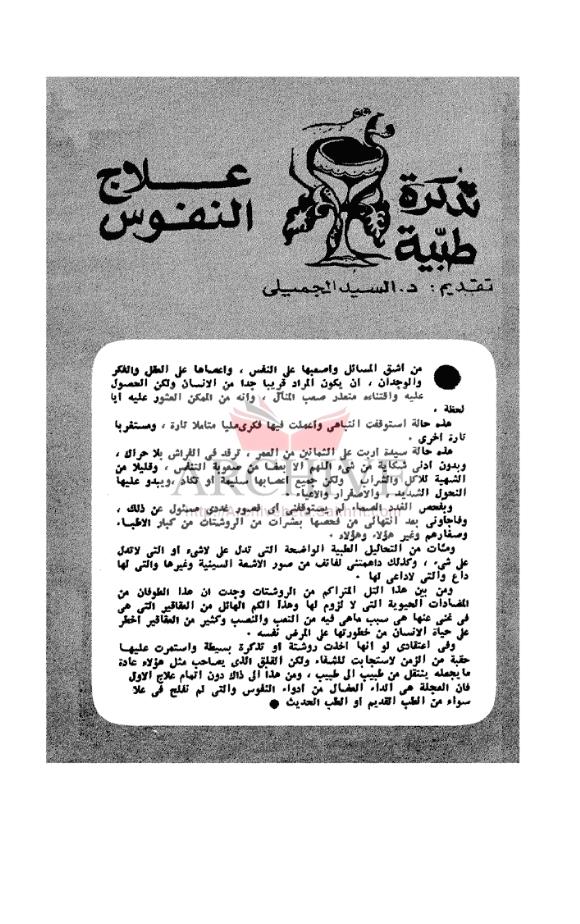 تذكرة
طبية
علاج
النفوس
تقديم: د. السيد الجميلى
من أشق المسائل وأصعبها على النفس ، وأعصاها على العقل والفكر
والوجدان ، أن يكون المراد قريبا جدا من الانسان ولكن الحصول
عليه واقتناءه متعذر صعب المنال ، وإنه من الممكن العثور عليه أيا
لحظة .
هذه حالة استوقفت انتباهى وأعملت فيها فكرى مليا متأملا تارة ، ومستغربا
تارة أخرى .
هذه حالة سيدة أربت على الثمانين من العمر ، ترقد فى الفراش بلا حراك ،
وبدون أدنى شكاية من شىء اللهم الا بعضا من صعوبة التنفس ، وقليلا من
الشهية للأكل والشراب ، ولكن جميع أعصابها سليمة أو تكاد ، ويبدو عليها
النحول الشديد ، والاصفرار والاعياء .
وبفحص الغدد الصماء لم يستوقفنى أى قصور غددى مسئول عن ذلك ،
وفاجأونى بعد انتهائى من فحصها بعشرات من الروشتات من كبار الأطباء
وصغارهم وغير هؤلاء وهؤلاء .
ومئات من التحاليل الطبية الواضحة التى تدل على لاشىء أو التى لاتدل
على شىء ، وكذلك داهمتنى لفائف من صور الأشعة السينية وغيرها والتى لها
داع والتى لاداعى لها .
ومن بين هذا التل المتراكم من الروشتات وجدت أن هذا الطوفان من
المضادات الحيوية التى لا لزوم لها وهذا الكم الهائل من العقاقير التى هى
فى غنى عنها هى سبب ماهى فيه من التعب والنصب وكثير من العقاقير أخطر
على حياة الانسان من خطورتها على المرض نفسه .
وفى اعتقادى لو أنها أخذت روشتة أو تذكرة بسيطة واستمرت عليها
حقبة من الزمن لاستجابت للشفاء ولكن القلق الذى يصاحب مثل هؤلاء عادة
مايجعله يتنقل من طبيب الى طبيب ، ومن هذا الى ذاك دون اتمام علاج الأول
فان العجلة هى الداء العضال من أدواء النفوس والتى لم تفلح فى علا
سواء من الطب القديم أو الطب الحديث
ARCHIVE